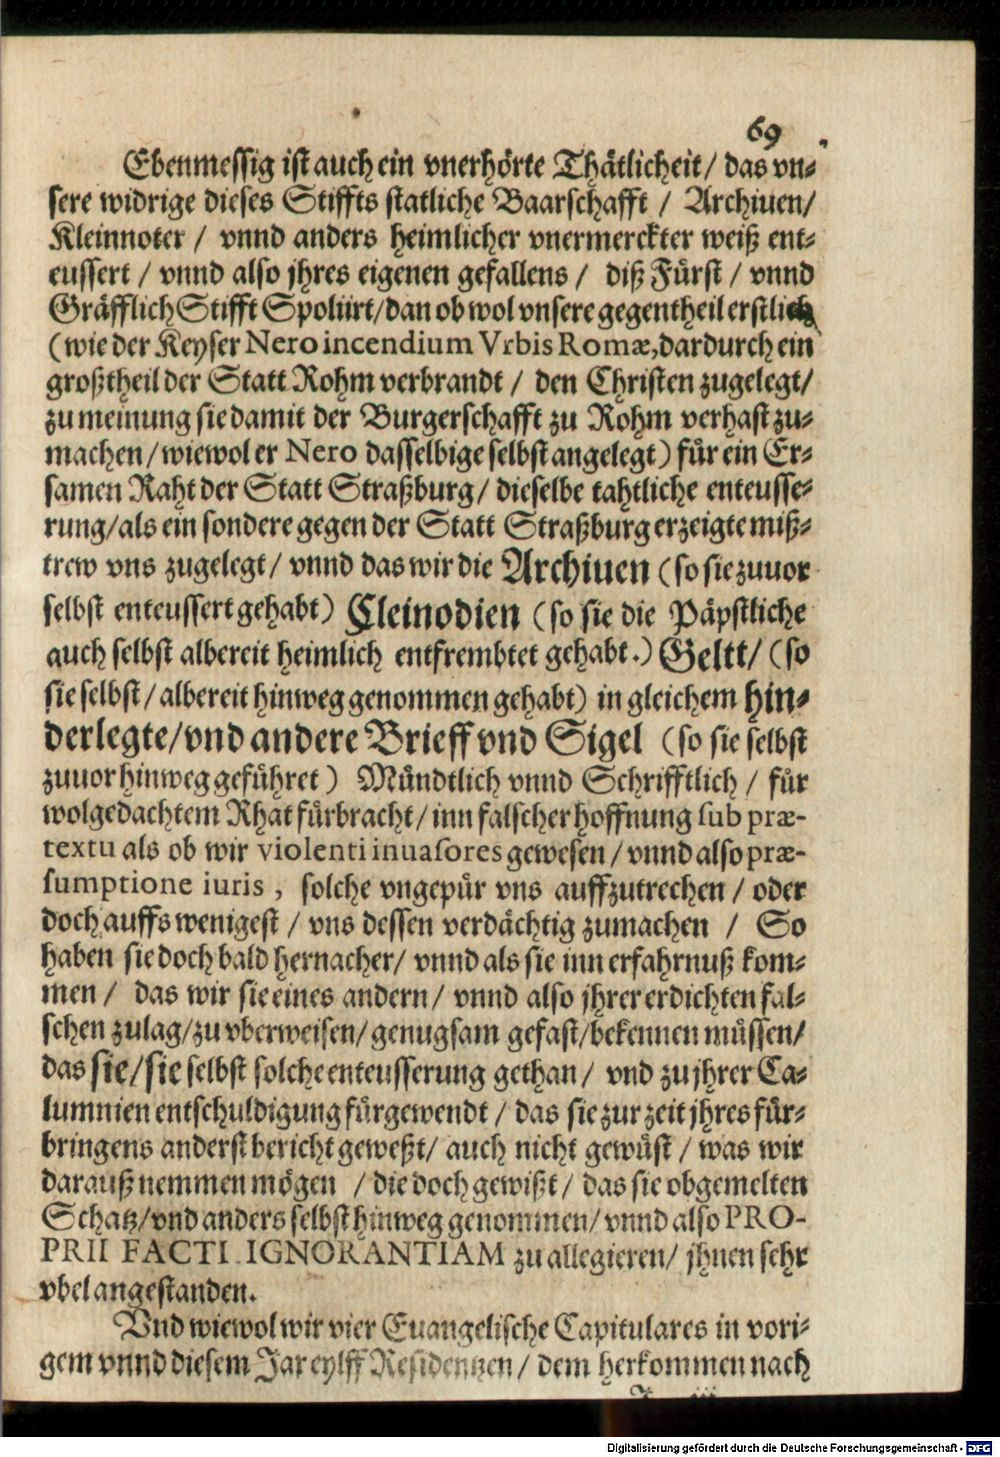 69
Ebenmessig ist auch ein vnerhörte Thätlicheit/ das vn-
sere widrige dieses Stiffts statliche Baarschafft / Archiuen/
Kleinnoter / vnnd anders heimlicher vnermerckter weiß ent-
eussert / vnnd also jhres eigenen gefallens / diß Fürst / vnnd
Gräfflich Stifft Spoliirt/dan ob wol vnsere gegentheil erstlich
(wie der Keyser Nero incendium Vrbis Romæ, dardurch ein
großtheil der Statt Rohm verbrandt / den Christen zugelegt/
zu meinung sie damit der Burgerschafft zu Rohm verhast zu-
machen/wiewol er Nero dasselbige selbst angelegt) für ein Er-
samen Raht der Statt Straßburg/ dieselbe tahtliche enteusse-
rung/als ein sondere gegen der Statt Straßburg erzeigte miß-
trew vns zugelegt/ vnnd das wir die Archiuen (so sie zuuor
selbst enteussert gehabt) Cleinodien (so sie die Päpstliche
auch selbst albereit heimlich entfrembtet gehabt.) Geltt/ (so
sie selbst/albereit hinweg genommen gehabt) in gleichem hin-
derlegte/vnd andere Brieff vnd Sigel (so sie selbst
zuuor hinweg geführet) Mündtlich vnnd Schrifftlich / für
wolgedachtem Rhat fürbracht/inn falscher hoffnung sub præ-
textu als ob wir violenti inuasores gewesen/vnnd also præ-
sumptione iuris, solche vngepür vns auffzutrechen/ oder
doch auffs wenigest / vns dessen verdächtig zumachen / So
haben sie doch bald hernacher/ vnnd als sie inn erfahrnuß kom-
men / das wir sie eines andern/ vnnd also jhrer erdichten fal-
schen zulag/zu vberweisen/genugsam gefast/bekennen müssen/
das sie/sie selbst solche enteusserung gethan/ vnd zu jhrer Ca-
lumnien entschuldigung fürgewendt / das sie zur zeit jhres für-
bringens anderst bericht geweßt/ auch nicht gewüst / was wir
darauß nemmen mögen / die doch gewißt/ das sie obgemelten
Schatz/vnd anders selbst hinweg genommen/vnnd also PRO-
PRII FACTI IGNORANTIAM zu allegieren/ jhnen sehr
vbel angestanden.
Vnd wiewol wir vier Euangelische Capitulares in vori-
gem vnnd diesem Jar eylff Residentzen/ dem herkommen nach
Digitalisierung gefördert durch die Deutsche Forschungsgemeinschaft - DFG